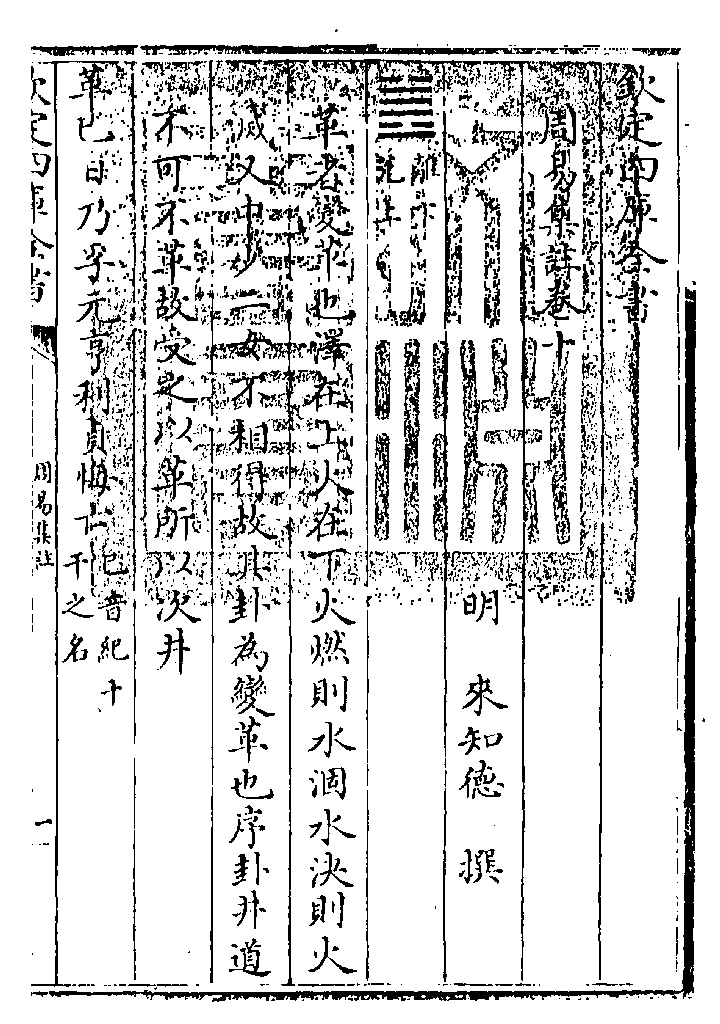 欽定四庫全書
周易集註卷十
明 來知德 撰
䷰
離下
兌上
革者變革也澤在上火在下火燃則水涸水決則火
滅又中少二女不相得故其卦為變革也序卦井道
不可不革故受之以革所以次井
革巳日乃孚元亨利貞悔亡
巳音紀十
干之名
欽定四庫全書
周易集註
一